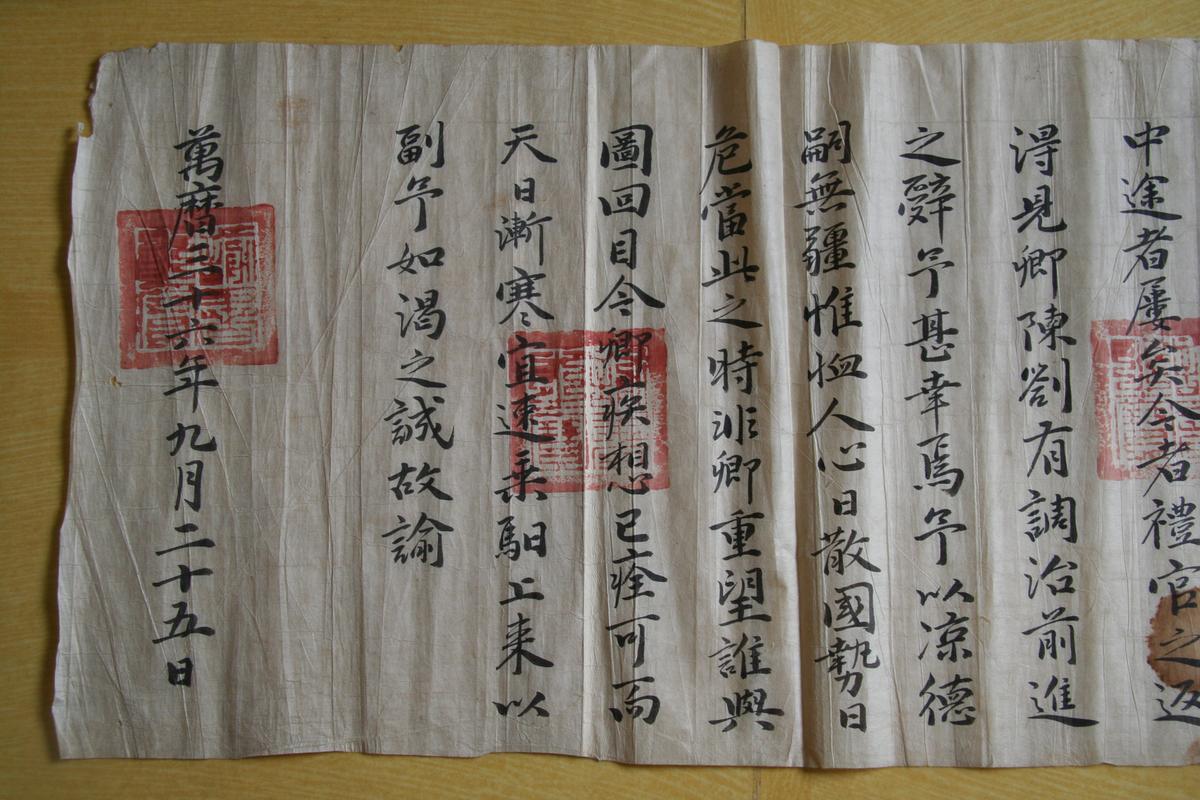 中途者屢矣今者禮官之返
淂見卿陳劄有調治前進
之辭予甚幸焉予以凉德
嗣無疆惟恤人心日散國勢日
危當此之時非卿重望誰與
圖回目今卿疾想已痊可而
天日漸寒宜速乘馹上來以
副予如渴之誠故諭
萬曆三十六年九月二十五日